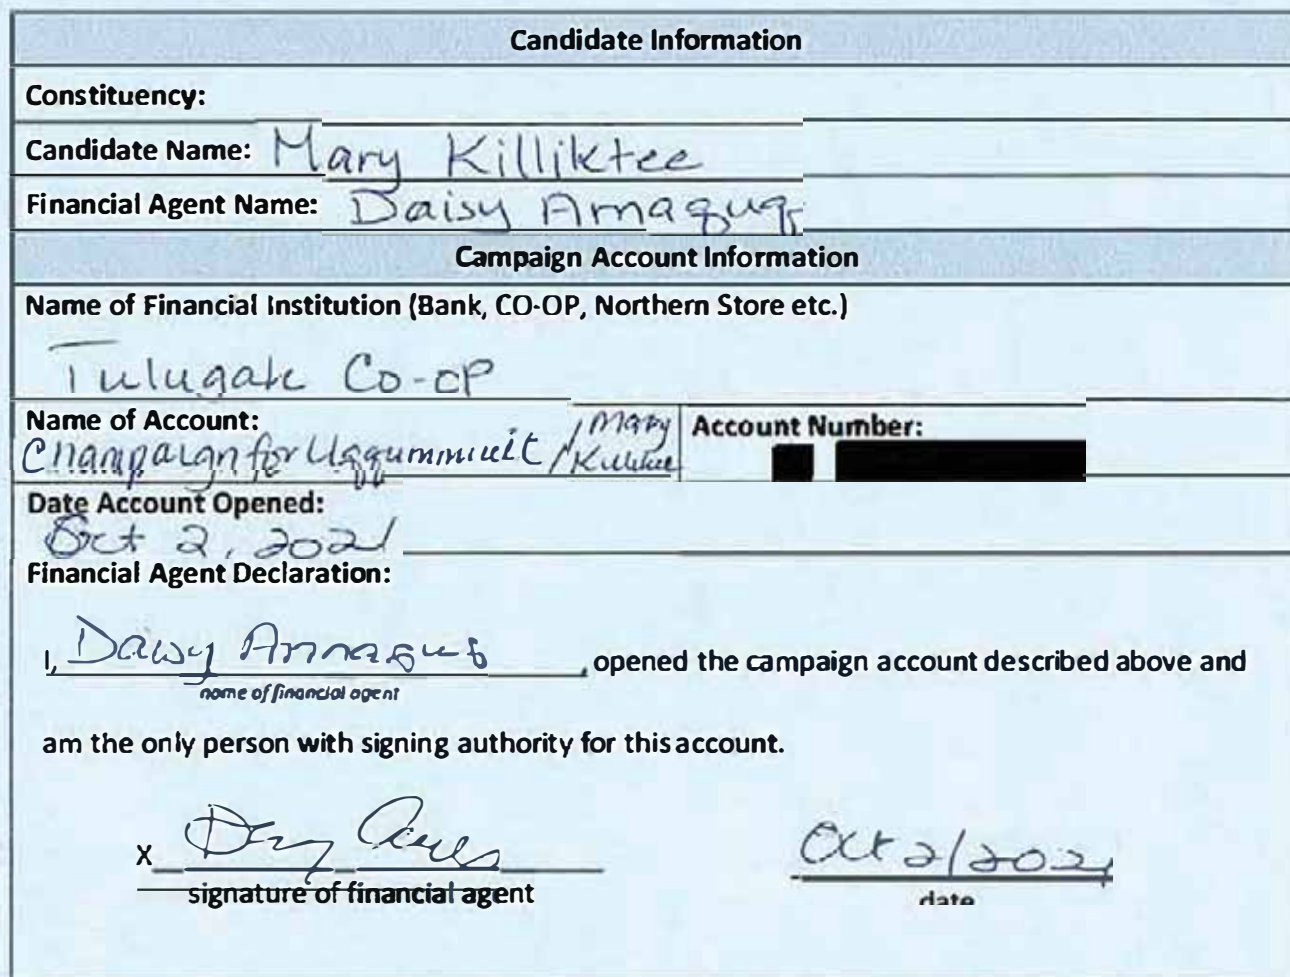 Candidate Information
Constituency:
Candidate Name: Mary Killiktee
Financial Agent Name: Daisy Arnaquq
Campaign Account Information
Name of Financial Institution (Bank, CO-OP, Northern Store etc.)
Tulugak Co-op
Name of Account: Account Number:
Champaign for Uqqummiut / Mary Killiktee
Date Account Opened:
Oct 2, 2021
Financial Agent Declaration:
I, Daisy Arnaquq, opened the campaign account described above and
name of financial agent
am the only person with signing authority for this account.
X
signature of financial agent
Oct 2/2021
date